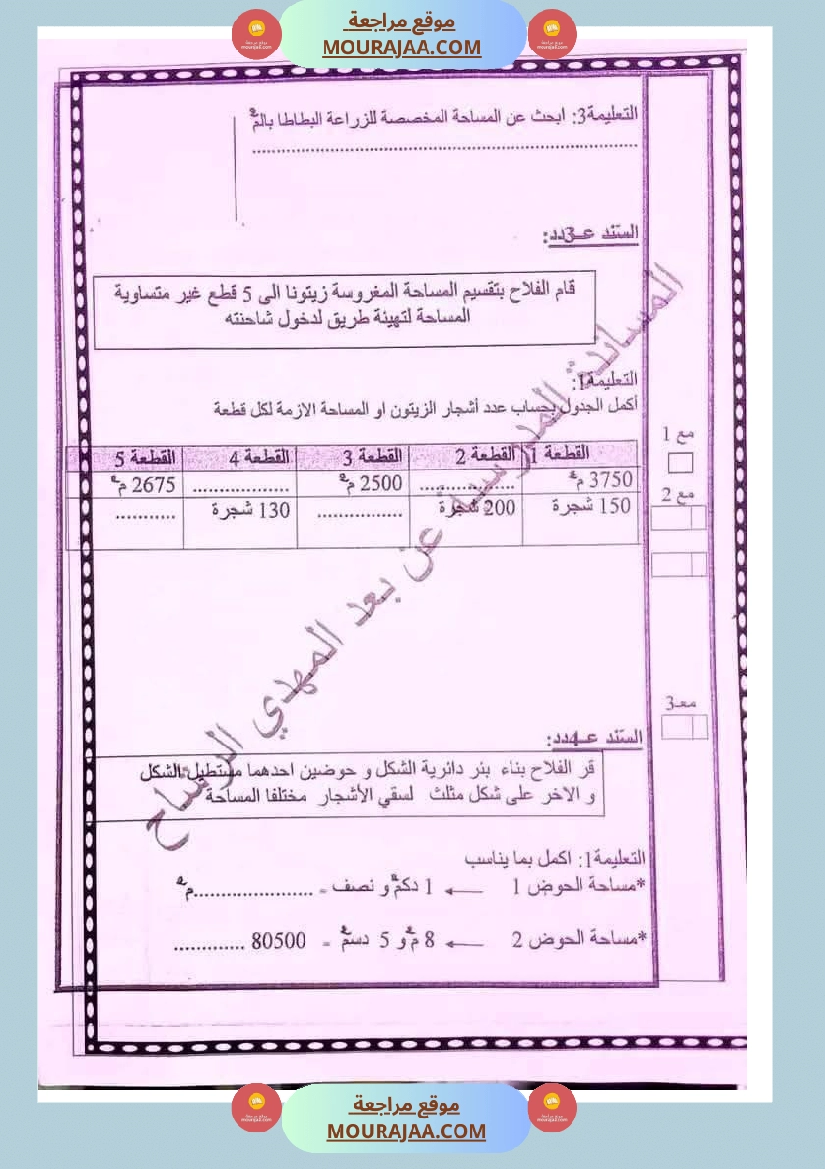 موقع مراجعة
MOURAJAA.COM
التعليمة3: ابحث عن المساحة المخصصة للزراعة البطاطا بالم²
................................................................................
السند عـ3ـدد:
قام الفلاح بتقسيم المساحة المغروسة زيتونا الى 5 قطع غير متساوية
المساحة لتهيئة طريق لدخول شاحنته
التعليمة1:
أكمل الجدول بحساب عدد أشجار الزيتون او المساحة الازمة لكل قطعة
القطعة 1 القطعة 2 القطعة 3 القطعة 4 القطعة 5
3750 م² .................. 2500 م² .................. 2675 م²
150 شجرة 200 شجرة ................ 130 شجرة ...........
مع 1
مع 2
معـ3
السند عـ4ـدد:
قر الفلاح بناء بئر دائرية الشكل و حوضين احدهما مستطيل الشكل
و الاخر على شكل مثلث لسقي الأشجار مختلفا المساحة
التعليمة1: اكمل بما يناسب
*مساحة الحوض 1 ← 1 دكم² و نصف = ......................م²
*مساحة الحوض 2 ← 8 م² و 5 دسم² = 80500 .............
المساندة المدرسية عن بعد المهدي الرساح
موقع مراجعة
MOURAJAA.COM